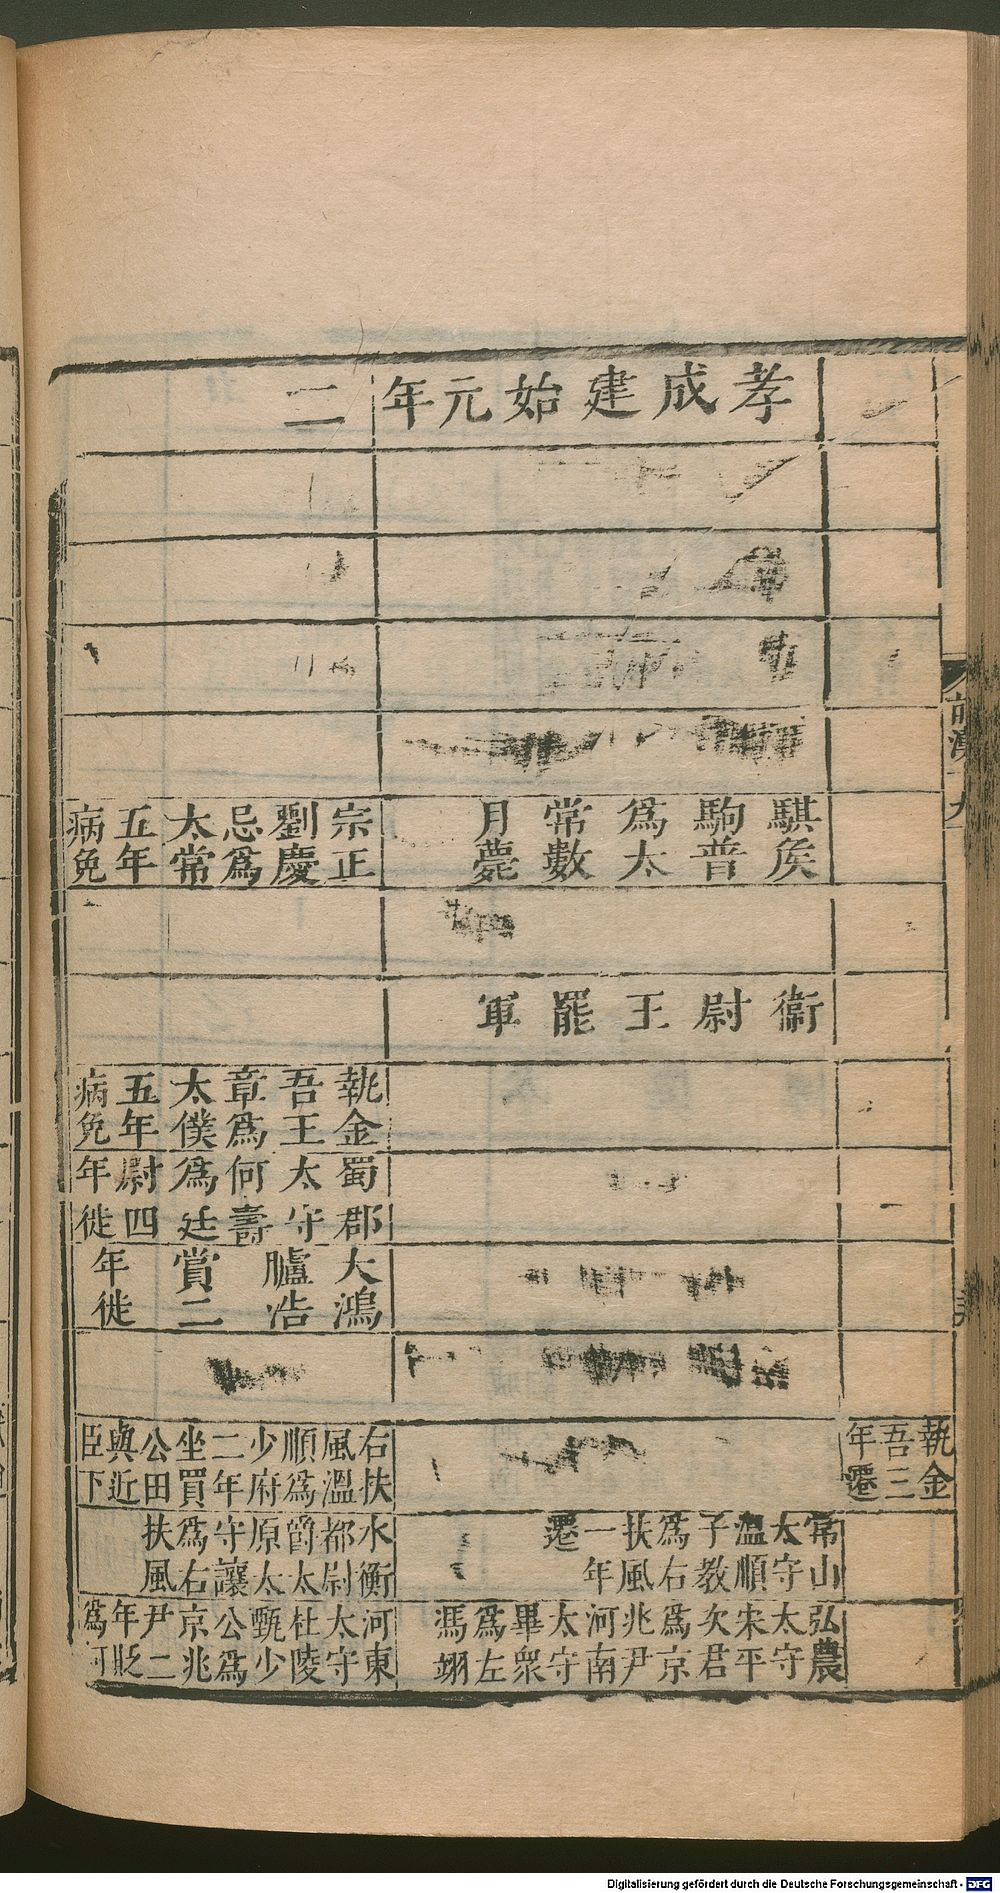 孝成建始元年
二
騏侯駒普為太常數月薨
宗正劉慶忌為太常五年病免
衞尉王罷軍
執金吾王章為太僕五年病免
蜀郡太守何壽為廷尉四年徙
大鴻臚浩賞二年徙
執金吾三年遷
右扶風溫順為少府二年坐買公田與近臣下
常山太守溫順子教為右扶風一年遷
水衡都尉爵太原太守讓為右扶風
弘農太守宋平次君為京兆尹河南太守畢眾為左馮翊
河東太守杜陵甄少公為京兆尹二年貶為河
前漢十九
Digitalisierung gefördert durch die Deutsche Forschungsgemeinschaft - DFG